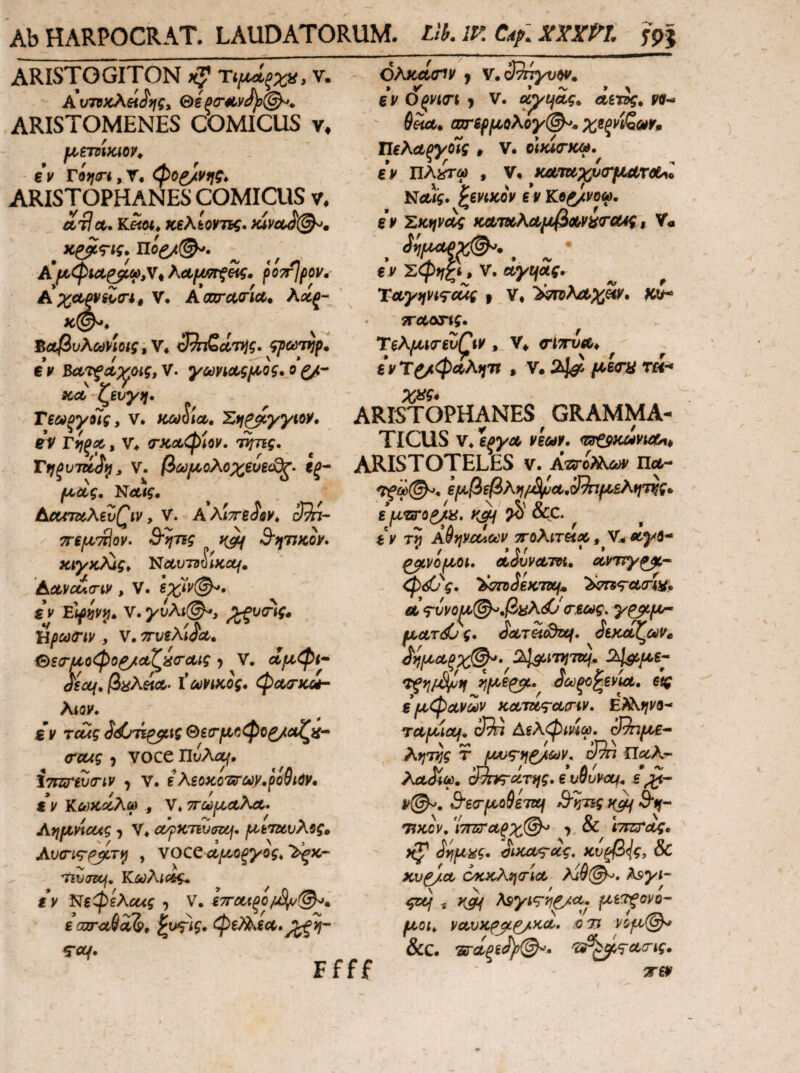 Ab HARPOCRAT. LAUDATORUM. Lib. IV. Cap. XXXVI. 593
ARISTOGITON κỳ Τιμάρχȣ, v.
Αὐτοκλείδης, Θέρσανδρ@.
ARISTOMENES COMICUS v.
μετοίκιον.
ἐν Γόησι, v. φορίνης.
ARISTOPHANES COMICUS v.
ἀτ]α. Κεῖοι. κελέοντες. κίναδ@.
κρᾶτις. Πόρι@.
Ἀμφιαράῳ, v. λαμπρεῖς. ῥόπ]ρον.
Ἀχαρνεῦσι, v. Ἀσπασία. λάρ-
κ@.
Βαβυλωνίοις, v. ἐπιβάτης. στρωτήρ.
ἐν Βατράχοις, v. γωνιασμός. ὀρί-
κὰ ζεύγη.
Γεωργοῖς, v. κωδία. Σηράγγιον.
ἐν Γήρᾳ, v. σκαφίον. τῆτες.
Γηρυτάδῃ, v. βωμολοχεύεσθαι. ἑρ-
μᾶς. Ναΐς.
Δαιταλεῦσιν, v. Ἀλίπεδον. ἐπι-
πεμπ]ον. θῆτες καὶ θητικόν.
κιγκλίς. Ναυτοδίκαι.
Δαναΐσιν, v. ἐχῖν@.
ἐν Εἰρήνῃ. v. γύλι@, χρυσίς.
Ἥρωσιν, v. πυελίδα.
Θεσμοφοριαζȣσαις, v. ἀμφι-
δέαι. βȣλεία. ἰωνικός. φασκώ-
λιον.
ἐν ταῖς δευτέραις Θεσμοφοριαζȣ-
σαις, voce Πύλαι.
Ἱππεῦσιν, v. ἐλεοκοπῶν. ῥόθιον.
ἐν Κωκάλῳ, v. πτωμαλα.
Λημνίαις, v. ἀρκτεῦσαι. μέταυλος.
Λυσιστράτῃ, voce ἀμοργός, ἀρκ-
τεῦσαι. Κωλιάς.
ἐν Νεφέλαις, v. ἐπαιρόμεν@.
ἐσπαθᾶτο. ξυστίς. φελλέα. χρῆ-
σται.
ὁλκάσιν, v. ἐπίγυον.
ἐν Ὄρνισι, v. ἀγυιάς. ἀετός. νο-
θεῖα. σπερμολόγ@. χερνίβων.
Πελαργοῖς, v. οἰκίσκῳ.
ἐν Πλȣτῳ, v. καταχύσματα.
Ναΐς. ξενικὸν ἐν Κορίνθῳ.
ἐν Σκηνὰς καταλαμβανȣσαις, v.
δήμαρχ@.
ἐν Σφηξὶ, v. ἀγυιάς.
Ταγηνισταῖς, v. ἀπολαχεῖν. κυ-
πασσις.
Τελμισεῦσιν, v. σιπύα.
ἐν Τριφάλητι, v. διὰ μέσȣ τεί-
χȣς.
ARISTOPHANES GRAMMA-
TICUS v. ἔργα νέων. προκώνια.
ARISTOTELES v. Ἀπόλλων Πα-
τρῷ@. ἐμβεβλημένα. ἐπιμελητὴς
ἐμπορίȣ. καὶ γὸ &c.
ἐν τῇ Ἀθηναίων πολιτείᾳ, v. ἀγο-
ρανόμοι. ἀδύνατοι. ἀντιγρα-
φεύς. ἀποδέκται. ἀποστασίȣ.
ἀστυνόμ@. βȣλεύσεως. γραμ-
ματεύς. δατεῖσθαι. δεκάζων.
δήμαρχ@. διαιτηταί. διαμε-
τρημένη ἡμέρα. δωροξενία. εἰς
ἐμφανῶν κατάστασιν. Ἑλληνο-
ταμίαι. ἐπὶ Δελφινίῳ. ἐπιμε-
λητὴς τ μυστηρίων. ἐπὶ Παλ-
λαδίῳ. ἐπιστάτης. εὐθύναι. ἐχῖ-
ν@. θεσμοθέται θῆτες καὶ θη-
τικόν. ἵππαρχ@, & ἱππάς.
κỳ δήμȣς. δικαστάς. κύρβεις, &
κυρία ἐκκλησία λίθ@. λογι-
σταὶ, καὶ λογιστήρια. μετρονό-
μοι. ναυκραρικά. ὅ τι νόμ@
&c. πάρεδρ@. παράστασις.
Ffff πεν